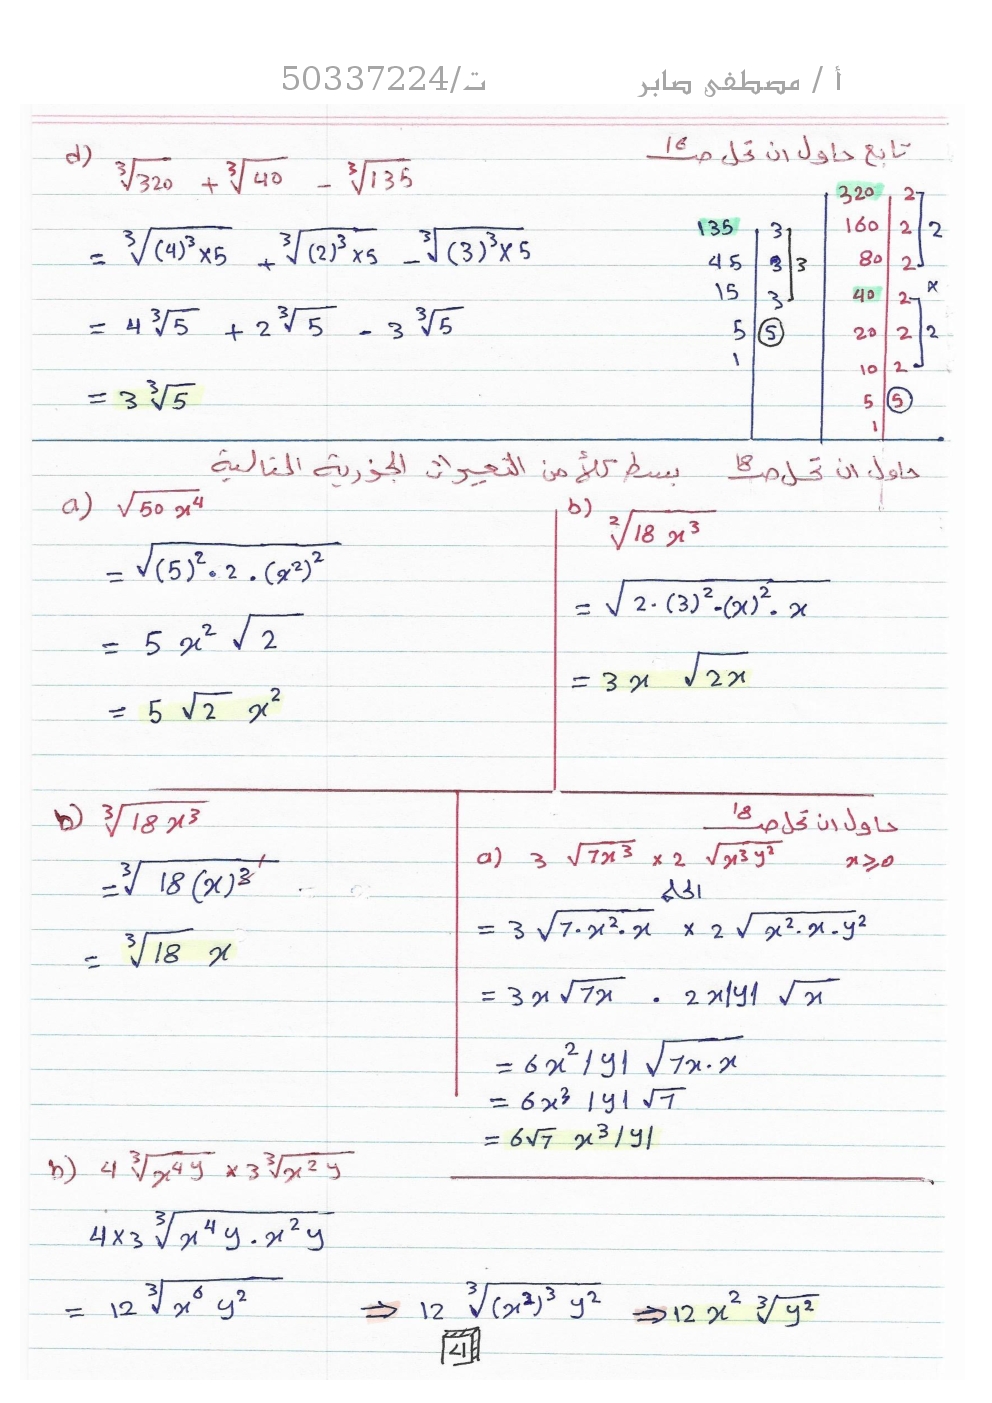 أ / مصطفى صابر ت/50337224
تابع حاول ان تحل صـ 16
d) ∛320 + ∛40 - ∛135
= ∛(4)³×5 + ∛(2)³×5 - ∛(3)³×5
= 4∛5 + 2∛5 - 3∛5
= 3∛5
135 | 3
45 | 3
15 | 3
5 | 5
1
3
320 | 2
160 | 2
80 | 2
40 | 2
20 | 2
10 | 2
5 | 5
1
2
×
2
حاول ان تحل صـ 18 بسط كلاً من التعبيرات الجذرية التالية
a) √50 x⁴
= √(5)² · 2 · (x²)²
= 5 x² √2
= 5 √2 x²
b) ²√18 x³
= √2 · (3)² · (x)² · x
= 3x √2x
b) ∛18 x³
= ∛18 (x)³
= ∛18 x
حاول ان تحل صـ 18
a) 3 √7x³ × 2 √x³y² x ⩾ 0
الحل
= 3 √7·x²·x × 2 √x²·x·y²
= 3x √7x · 2x|y| √x
= 6x² |y| √7x·x
= 6x³ |y| √7
= 6√7 x³|y|
b) 4 ∛x⁴y × 3 ∛x²y
4×3 ∛x⁴y · x²y
= 12 ∛x⁶ y² ⇒ 12 ∛(x²)³ y² ⇒ 12 x² ∛y²
4